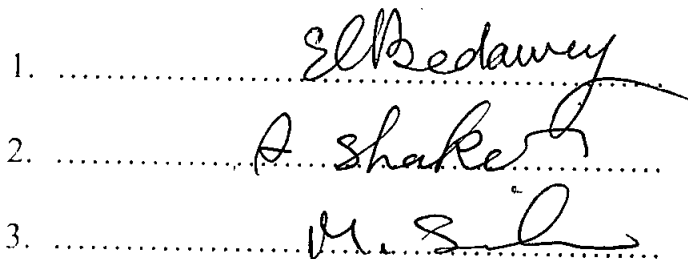 1. ElBedawey
2. A Shaker
3. M.